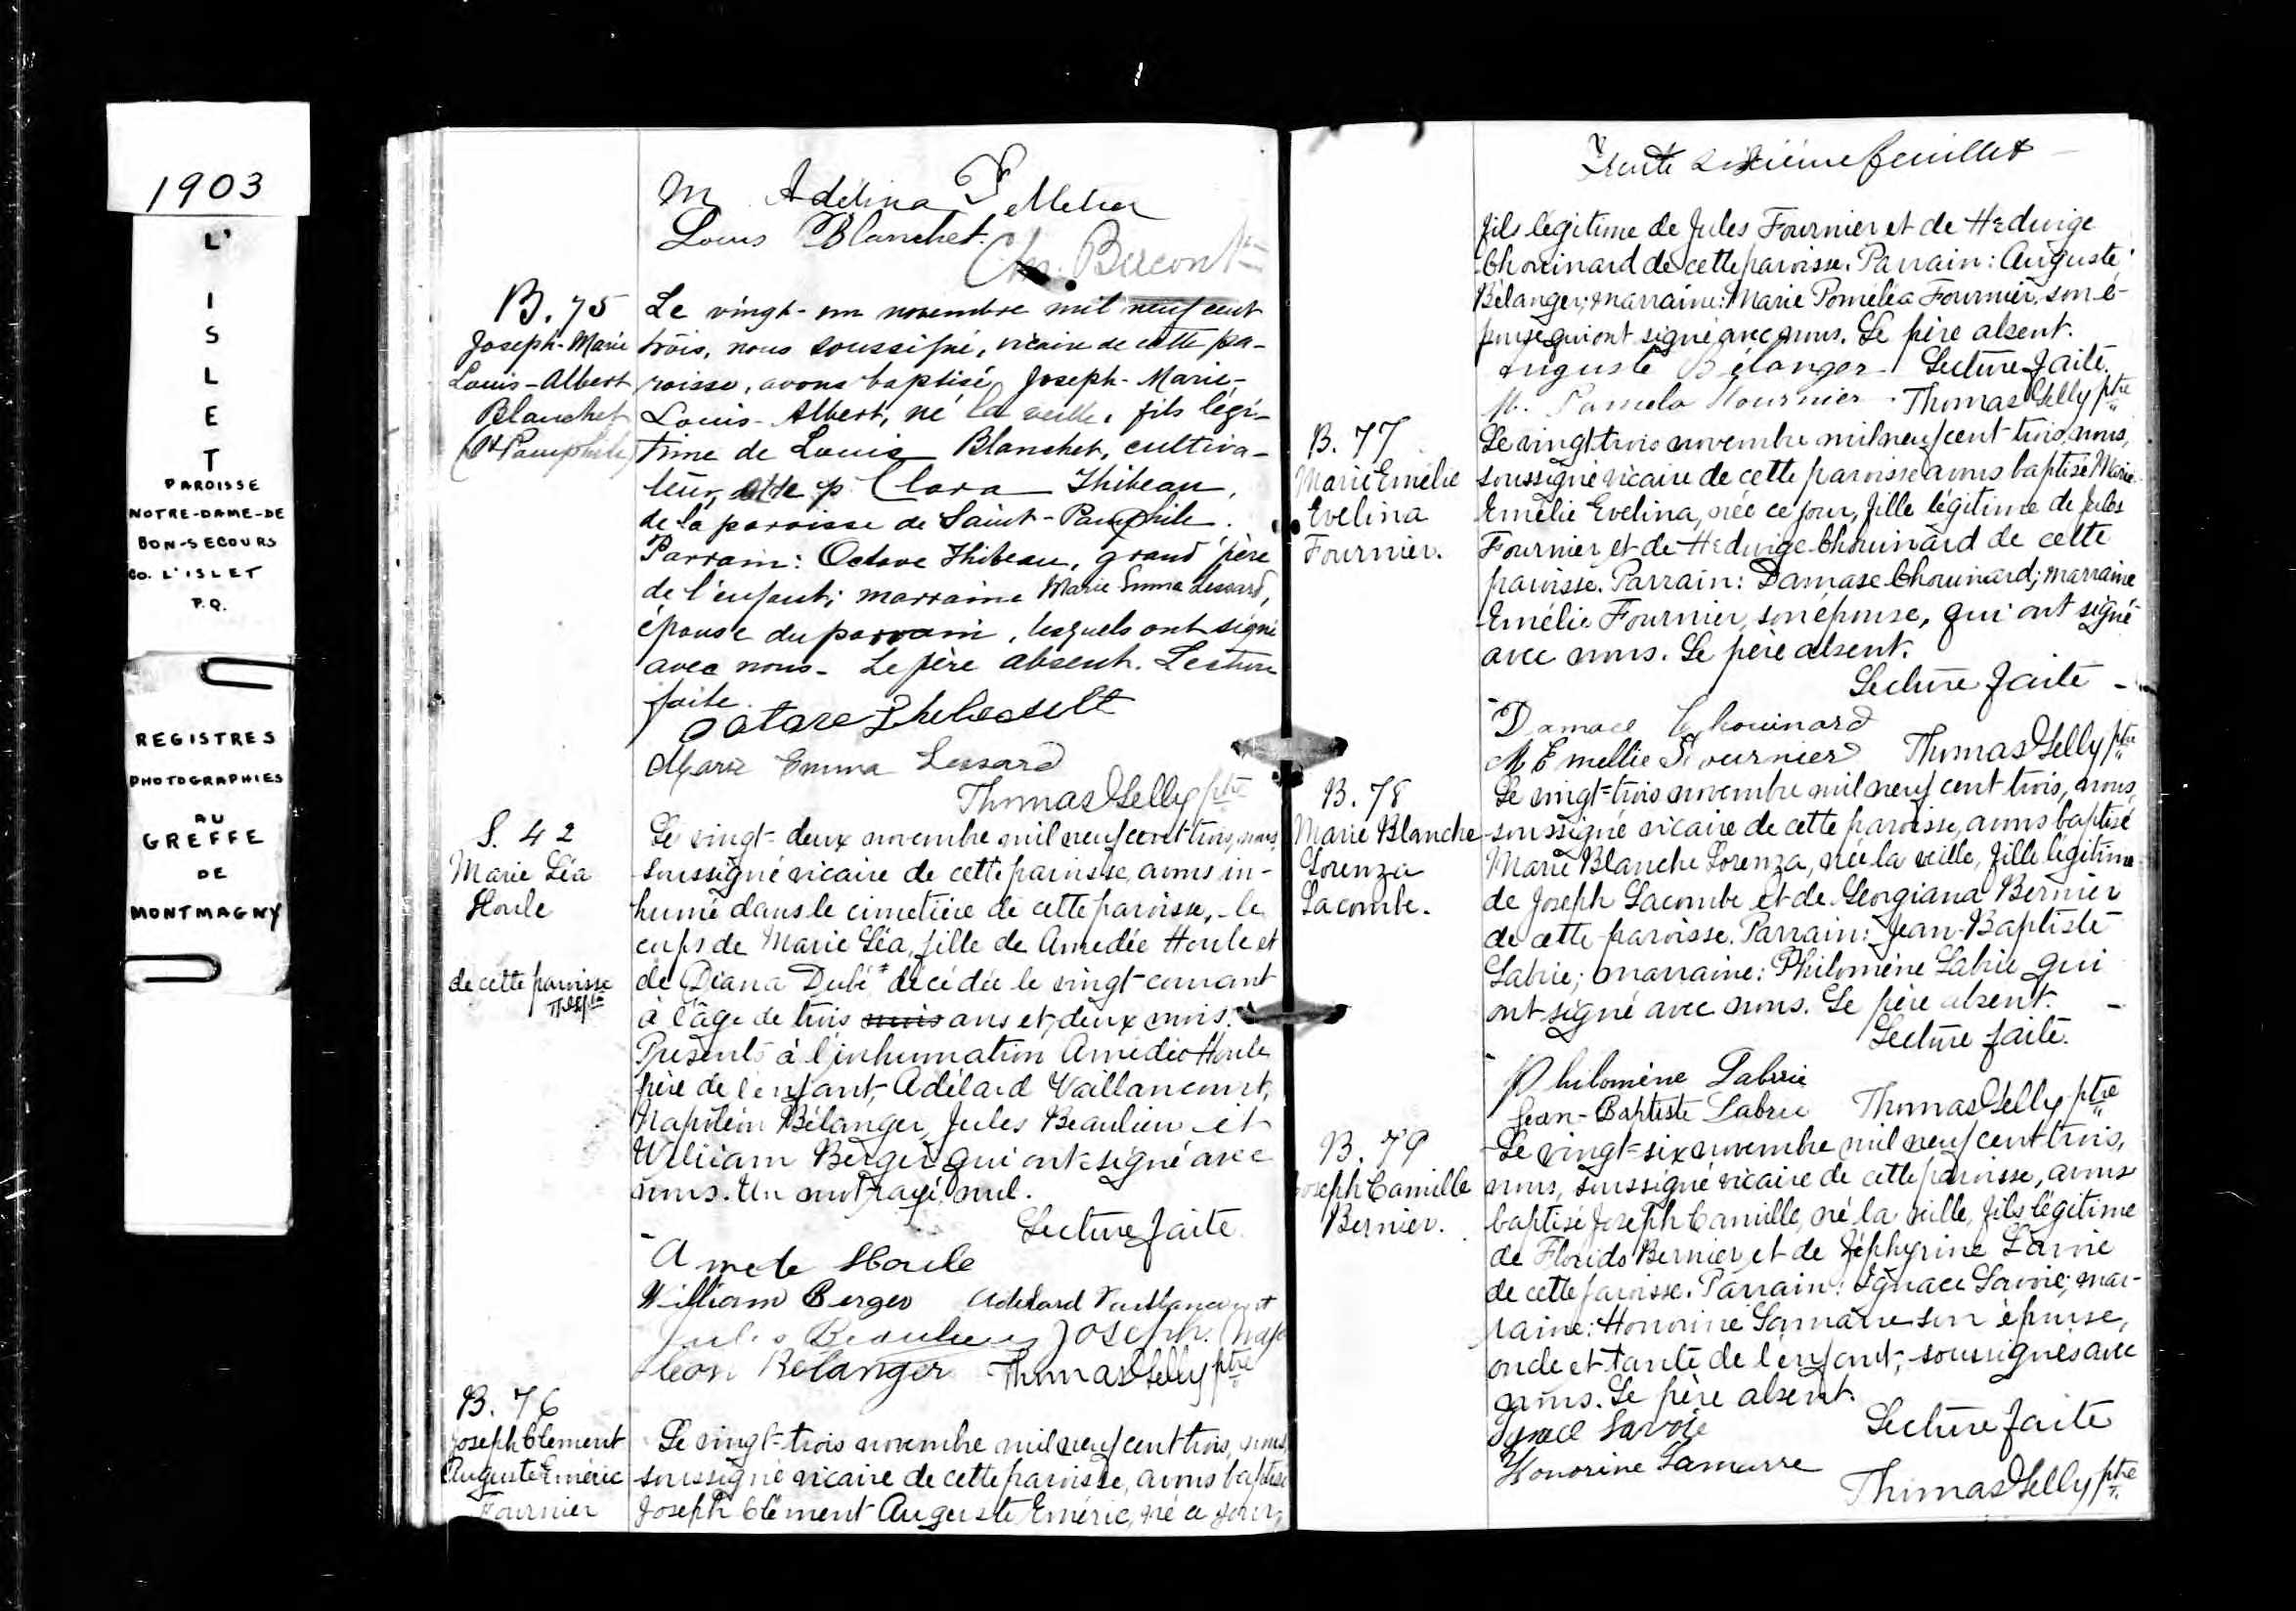 1903
L'
I
S
L
E
T
PAROISSE
NOTRE-DAME-DE
BON-SECOURS
CO. L'ISLET
P.Q.
REGISTRES
PHOTOGRAPHIES
AU
GREFFE
DE
MONTMAGNY
M Adélina Pelletier
Louis Blanchet.
B. 75
Joseph-Marie
Louis-Albert
Blanchet
(St Pamphile)
Le vingt-un novembre mil neuf cent
trois, nous soussigné, vicaire de cette pa-
roisse, avons baptisé Joseph-Marie-
Louis-Albert, né la veille, fils légi-
time de Louis Blanchet, cultiva-
teur, Clara Thibeau,
de la paroisse de Saint-Pamphile.
Parrain: Octave Thibeau, grand père
de l'enfant; marraine Marie Emma Lessard,
épouse du parrain, lesquels ont signé
avec nous. Le père absent. Lecture
faite.
Marie Emma Lessard
Thomas Pelly ptre
S. 42
Marie Léa
Houle
de cette paroisse
Le vingt-deux novembre mil neuf cent trois, nous
soussigné vicaire de cette paroisse, avons in-
humé dans le cimetière de cette paroisse, le
corps de Marie Léa, fille de Amedée Houle et
de Diana Dubé décédée le vingt courant
à l'âge de trois mois ans et deux mois.
Présents à l'inhumation Amédée Houle
père de l'enfant, Adélard Vaillancourt,
Napoléon Bélanger, Jules Beaulieu et
William Berger qui ont signé avec
nous. Un mot rayé nul.
Lecture faite
Amede Houle
William Berger Adelard Vaillancourt
Jules Beaulieu Joseph. Nap
oleon Bélanger Thomas Pelly ptre
B. 76
Joseph Clement
Auguste Eméric
Fournier
Le vingt-trois novembre mil neuf cent trois, nous,
soussigné vicaire de cette paroisse, avons baptisé
Joseph Clément Auguste Eméric, né ce jour,
Trente sixième feuillet
fils légitime de Jules Fournier et de Hedwige
Chouinard de cette paroisse. Parrain: Auguste
Bélanger; marraine: Marie Pomeléa Fournier, son é-
pouse qui ont signé avec nous. Le père absent.
Auguste Bélanger Lecture faite.
M. Pamela Fournier Thomas Pelly ptre
B. 77
Marie Emélie
Evelina
Fournier.
Le vingt trois novembre mil neuf cent trois, nous,
soussigné vicaire de cette paroisse avons baptisé Marie
Emélie Evelina, née ce jour, fille légitime de Jules
Fournier et de Hedwige Chouinard de cette
paroisse. Parrain: Damase Chouinard; marraine
Emélie Fournier, son épouse, qui ont signé
avec nous. Le père absent.
Lecture faite
Damase Chouinard
M Emellie Fournier Thomas Pelly ptre
B. 78
Marie Blanche
Lorenza
Lacombe.
Le vingt-trois novembre mil neuf cent trois, nous,
soussigné vicaire de cette paroisse, avons baptisé
Marie Blanche Lorenza, née la veille, fille légitime
de Joseph Lacombe et de Georgiana Bernier
de cette paroisse. Parrain: Jean-Baptiste
Labrie; marraine: Philomène Labrie qui
ont signé avec nous. Le père absent.
Lecture faite.
Philomène Labrie
Jean-Baptiste Labrie Thomas Pelly ptre
B. 79
Joseph Camille
Bernier.
Le vingt-six novembre mil neuf cent trois,
nous, soussigné vicaire de cette paroisse, avons
baptisé Joseph Camille, né la veille, fils légitime
de Florido Bernier et de Zéphyrine Lavoie
de cette paroisse. Parrain: Ignace Savoie; mar-
raine: Honorine Lamarre son épouse,
oncle et tante de l'enfant, soussignés avec
nous. Le père absent.
Ignace Savoie Lecture faite
Honorine Lamarre
Thomas Pelly ptre